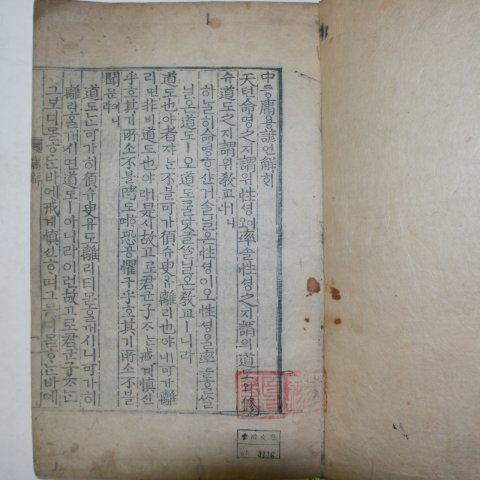 中듕庸용諺언解ᄒᆡ
天텬命명之지謂위性셩이오率솔性셩之지謂위道도ㅣ오修
슈道도之지謂위敎교ㅣ니라
하ᄂᆞᆯ히命명ᄒᆞ샨거슬닐온性셩이오性셩을率솔ᄒᆞᆯᄉᆞᆯ
닐온道도ㅣ오道도ᄅᆞᆯ닷글ᄉᆞᆯ닐온敎교ㅣ니라
道도也야者쟈ᄂᆞᆫ不블可가須슈臾유離리也야ㅣ니可가離
리면非비道도也야ㅣ라是시故고로君군子ᄌᆞᄂᆞᆫ戒계愼신
乎호其기所소不블睹도ᄒᆞ며恐공懼구乎호其기所소不블
聞문이니라
道도ᄂᆞᆫ可가히須슈臾유도離리티몯ᄒᆞᆯ꺼시니可가히
離리ᄒᆞᆯ꺼시면道도ㅣ아니라이런故고로君군子ᄌᆞᄂᆞᆫ
그보디몯ᄒᆞᄂᆞᆫ바에戒계愼신ᄒᆞ며그듣디몯ᄒᆞᄂᆞᆫ바에
3116